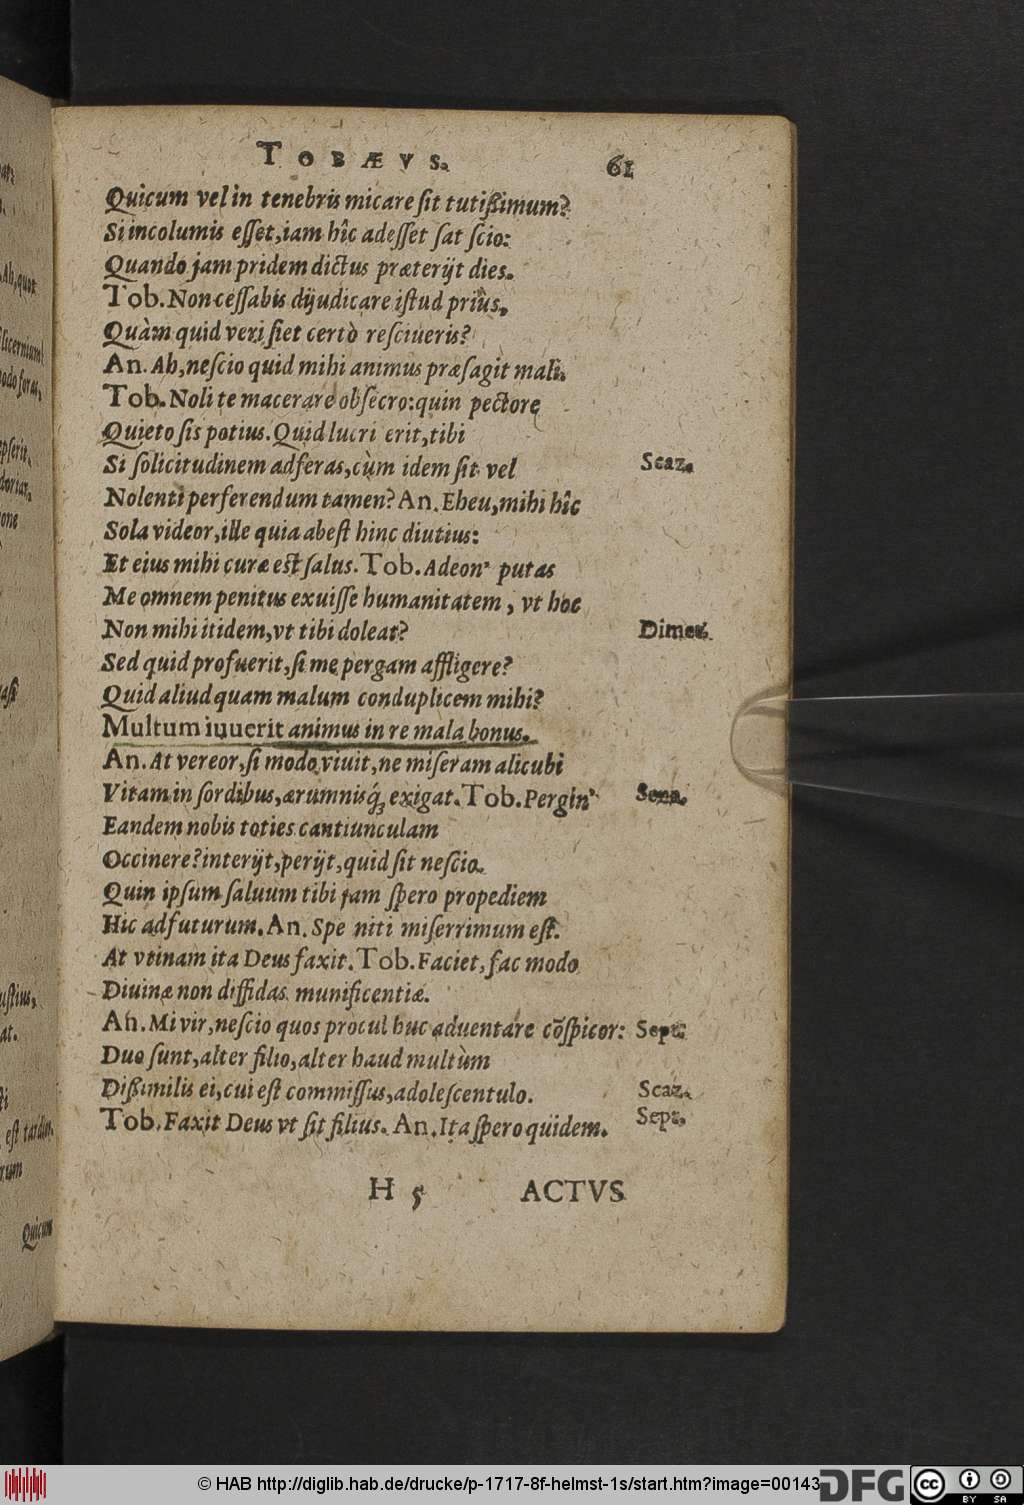 TOBÆVS. 61
Quicum vel in tenebris micare ſit tutiſſimum?
Si incolumis eſſet, iam hîc adeſſet ſat ſcio:
Quando jam pridem dictus præterijt dies.
Tob. Non ceſſabis dijudicare iſtud priùs,
Quàm quid veri ſiet certò reſciueris?
An. Ah, neſcio quid mihi animus præſagit mali.
Tob. Noli te macerare obſecro: quin pectore
Quieto ſis potius. Quid lucri erit, tibi
Si ſolicitudinem adferas, cùm idem ſit vel Scaz.
Nolenti perferendum tamen? An. Eheu, mihi hîc
Sola videor, ille quia abeſt hinc diutius:
Et eius mihi curæ eſt ſalus. Tob. Adeon' putas
Me omnem penitus exuiſſe humanitatem, vt hoc
Non mihi itidem, vt tibi doleat? Dimet.
Sed quid profuerit, ſi me pergam affligere?
Quid aliud quam malum conduplicem mihi?
Multum iuuerit animus in re mala bonus.
An. At vereor, ſi modo viuit, ne miſeram alicubi
Vitam in ſordibus, ærumnisq́; exigat. Tob. Pergin' Sena.
Eandem nobis toties cantiunculam
Occinere? interijt, perijt, quid ſit neſcio.
Quin ipſum ſaluum tibi jam ſpero propediem
Hic adfuturum. An. Spe niti miſerrimum eſt.
At vtinam ita Deus faxit. Tob. Faciet, fac modo
Diuinæ non diffidas munificentiæ.
An. Mi vir, neſcio quos procul huc aduentare cõſpicor: Sept.
Duo ſunt, alter filio, alter haud multùm
Diſſimilis ei, cui eſt commiſſus, adoleſcentulo. Scaz.
Tob. Faxit Deus vt ſit filius. An. Ita ſpero quidem. Sept.
H 5 ACTVS
Ah, quot
licernium!
modo foras,
one
quaſi
uſtius,
at.
eſt tardior,
rum
Quicum
© HAB http://diglib.hab.de/drucke/p-1717-8f-helmst-1s/start.htm?image=00143
DFG
cc BY SA